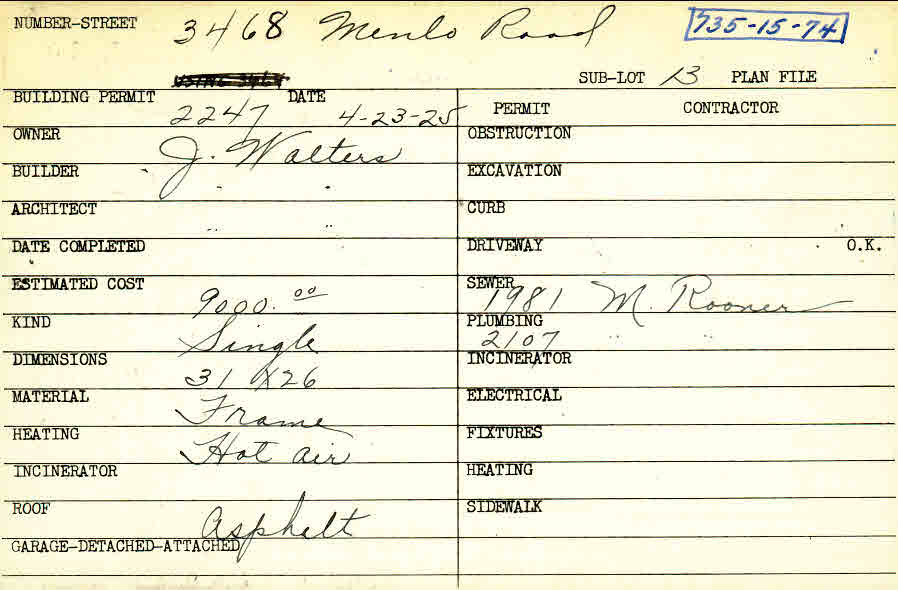 NUMBER-STREET 3468 Menlo Road 735-15-74
SUB-LOT 13 PLAN FILE
BUILDING PERMIT 2247 DATE 4-23-25
PERMIT CONTRACTOR
OWNER J. Walters
OBSTRUCTION
BUILDER " "
EXCAVATION
ARCHITECT " "
CURB
DATE COMPLETED
DRIVEWAY O.K.
ESTIMATED COST 9000.00
SEWER 1981 M. Rooner
KIND Single
PLUMBING 2107 " "
DIMENSIONS 31 X 26
INCINERATOR
MATERIAL Frame
ELECTRICAL
HEATING Hot air
FIXTURES
INCINERATOR
HEATING
ROOF Asphalt
SIDEWALK
GARAGE-DETACHED-ATTACHED